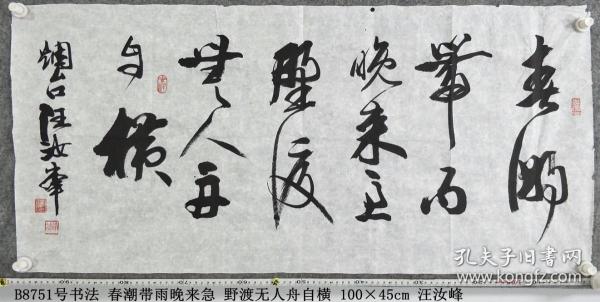 春潮
带雨
晚来急
野渡
无人舟
自横
烟台汪汝峰
孔夫子旧书网
B8751号书法 春潮带雨晚来急 野渡无人舟自横 100×45cm 汪汝峰